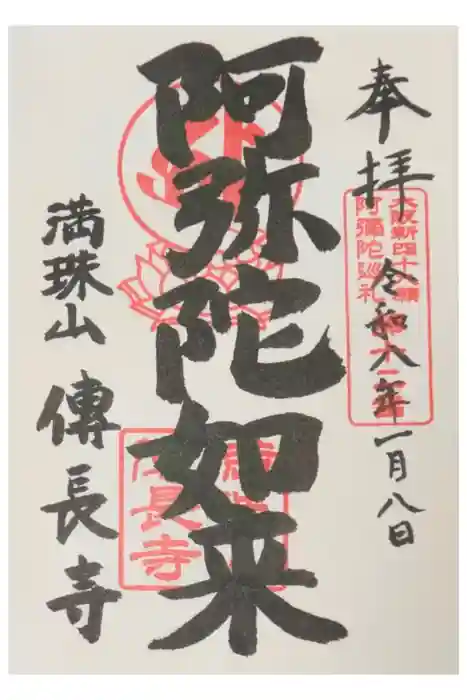 奉拝
令和六年一月八日
大阪新四十八願
阿彌陀巡礼
阿弥陀如来
満珠山
傳長寺
長寺